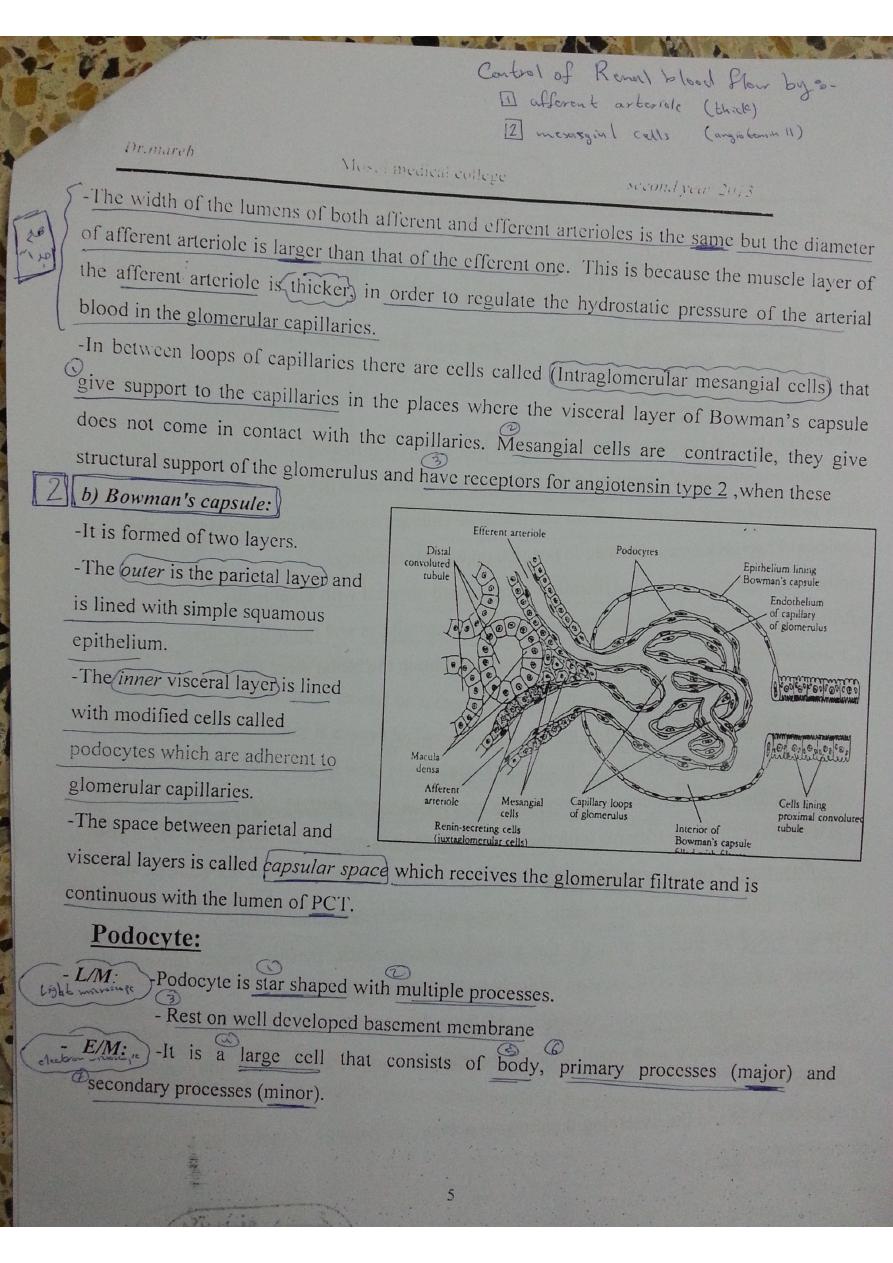 Control of Renal blood flow by:-
1 afferent arteriole (thick)
2 mesasginl cells (angiotensin 11)
Dr.mareb
medical college
second year 2013
-The width of the lumens of both afferent and efferent arterioles is the same but the diameter
of afferent arteriole is larger than that of the efferent one. This is because the muscle layer of
the afferent arteriole is thicker, in order to regulate the hydrostatic pressure of the arterial
blood in the glomerular capillaries.
-In between loops of capillaries there are cells called (Intraglomerular mesangial cells) that
1
give support to the capillaries in the places where the visceral layer of Bowman's capsule
2
does not come in contact with the capillaries. Mesangial cells are contractile, they give
3
structural support of the glomerulus and have receptors for angiotensin type 2 ,when these
2 b) Bowman's capsule:
-It is formed of two layers.
-The outer is the parietal layer and
is lined with simple squamous
epithelium.
-The inner visceral layer is lined
with modified cells called
podocytes which are adherent to
glomerular capillaries.
-The space between parietal and
visceral layers is called capsular space which receives the glomerular filtrate and is
continuous with the lumen of PCT.
Efferent arteriole
Distal
convoluted
tubule
Podocytes
Epithelium lining
Bowman's capsule
Endothelium
of capillary
of glomerulus
Macula
densa
Afferent
arteriole
Mesangial
cells
Renin-secreting cells
(juxtaglomerular cells)
Capillary loops
of glomerulus
Interior of
Bowman's capsule
Cells lining
proximal convoluted
tubule
Podocyte:
1 2
- L/M: -Podocyte is star shaped with multiple processes.
Light microscope
3
- Rest on well developed basement membrane
4 5 6
- E/M: -It is a large cell that consists of body, primary processes (major) and
electron microscope
7
secondary processes (minor).
5